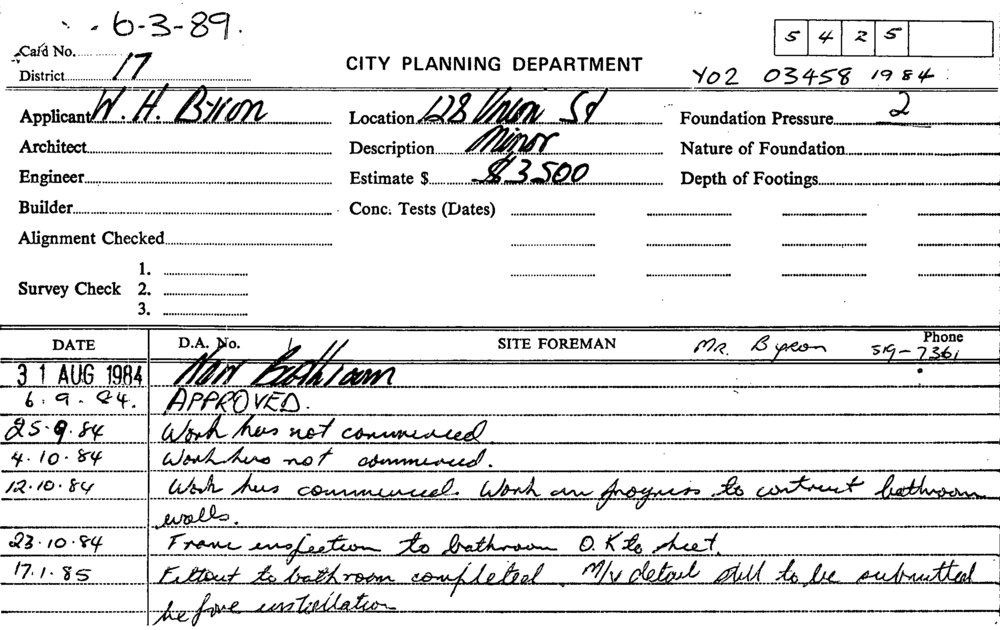 6-3-89.
Card No.
5 4 2 5
District 17
CITY PLANNING DEPARTMENT
Y02 03458 1984
Applicant W. H. Byron Location 128 Union St Foundation Pressure 2
Architect Description Minor Nature of Foundation
Engineer Estimate $ $3500 Depth of Footings
Builder Conc. Tests (Dates)
Alignment Checked
1.
Survey Check 2.
3.
DATE D.A. No. SITE FOREMAN MR. Byron Phone 519-7361
31 AUG 1984 New Bathroom
6.9.84. APPROVED.
25.9.84 Work has not commenced.
4.10.84 Work has not commenced.
12.10.84 Work has commenced. Work in progress to contruct bathroom
walls.
23.10.84 Frame inspection to bathroom O.K to sheet.
17.1.85 Fittout to bathroom completed. M/v detail still to be submitted
before installation